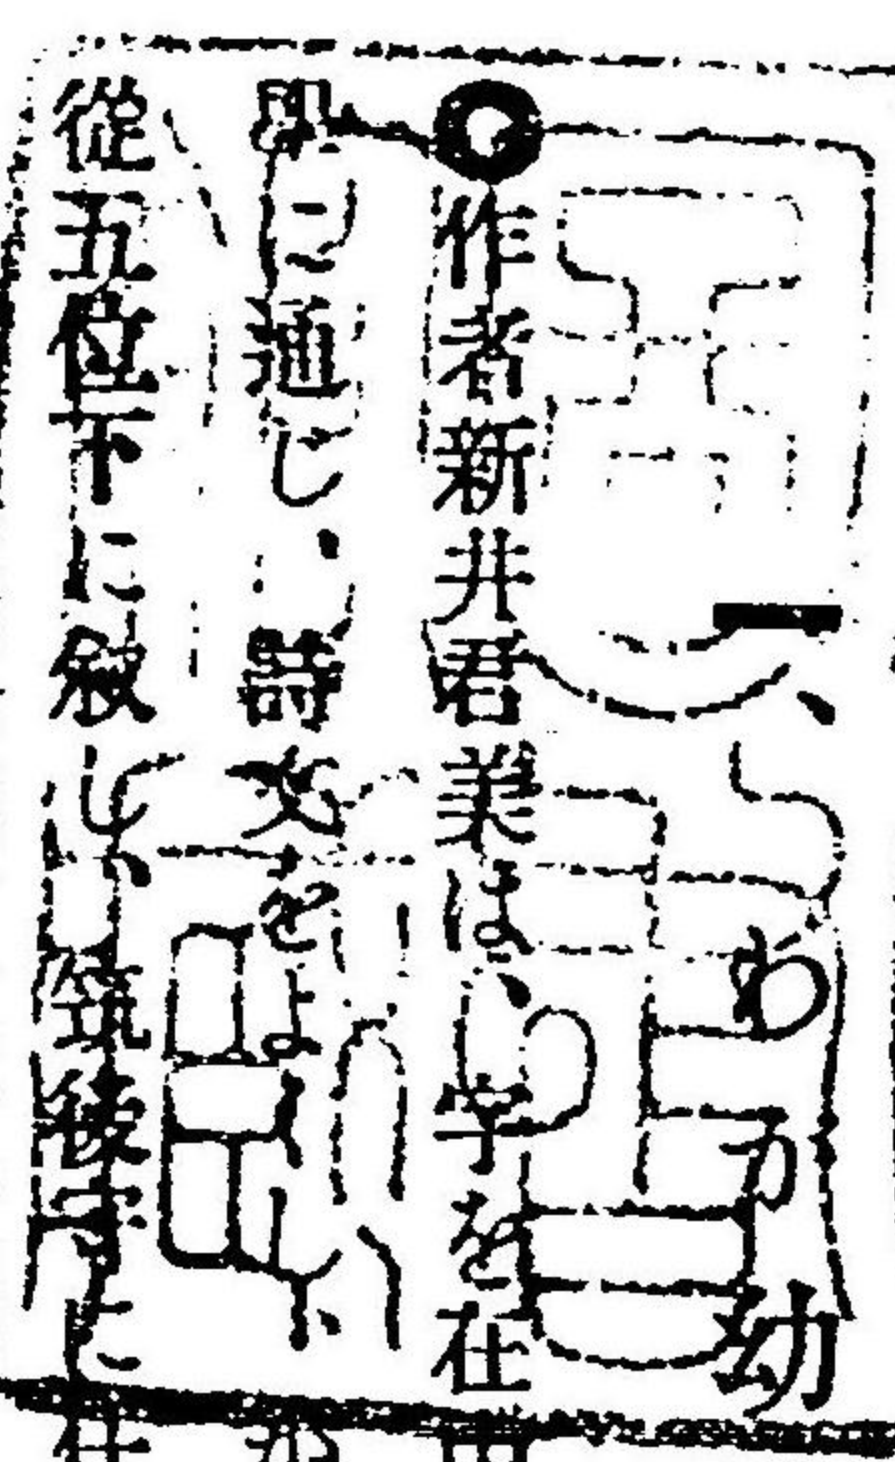 一、わが幼
○作者新井君美は、字を在
學に通じ、詩文をよくし、
從五位下に敍し、筑後守に任